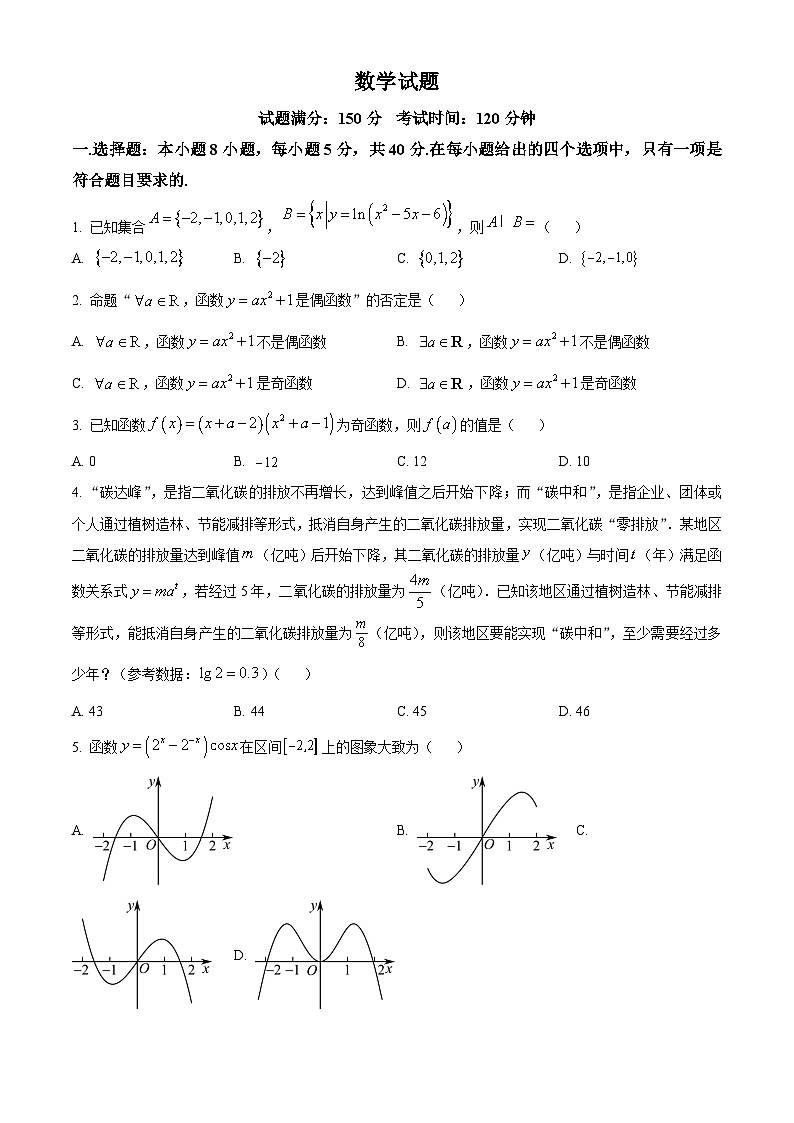 数学试题
试题满分：150 分 考试时间：120 分钟
一.选择题：本小题 8 小题，每小题 5 分，共 40 分.在每小题给出的四个选项中，只有一项是
符合题目要求的.
1. 已知集合 A={−2,−1,0,1,2}，B={x|y=ln(x²−5x−6)}，则 A∣ B=（ ）
A. {−2,−1,0,1,2} B. {−2} C. {0,1,2} D. {−2,−1,0}
2. 命题“∀a∈R，函数 y=ax²+1是偶函数”的否定是（ ）
A. ∀a∈R，函数 y=ax²+1不是偶函数 B. ∃a∈R，函数 y=ax²+1不是偶函数
C. ∀a∈R，函数 y=ax²+1是奇函数 D. ∃a∈R，函数 y=ax²+1是奇函数
3. 已知函数 f(x)=(x+a−2)(x²+a−1)为奇函数，则 f(a)的值是（ ）
A. 0 B. −12 C. 12 D. 10
4. “碳达峰”，是指二氧化碳的排放不再增长，达到峰值之后开始下降；而“碳中和”，是指企业、团体或
个人通过植树造林、节能减排等形式，抵消自身产生的二氧化碳排放量，实现二氧化碳“零排放”．某地区
二氧化碳的排放量达到峰值 m（亿吨）后开始下降，其二氧化碳的排放量 y（亿吨）与时间 t（年）满足函
数关系式 y=maᵗ，若经过 5 年，二氧化碳的排放量为 4m/5（亿吨）．已知该地区通过植树造林、节能减排
等形式，能抵消自身产生的二氧化碳排放量为 m/8（亿吨），则该地区要能实现“碳中和”，至少需要经过多
少年？（参考数据：lg 2=0.3）（ ）
A. 43 B. 44 C. 45 D. 46
5. 函数 y=(2ˣ−2⁻ˣ)cosx在区间[−2,2]上的图象大致为（ ）
A. y −2 −1 O 1 2 x B. y −2 −1 O 1 2 x C.
y −2 −1 O 1 2 x D. y −2 −1 O 1 2 x